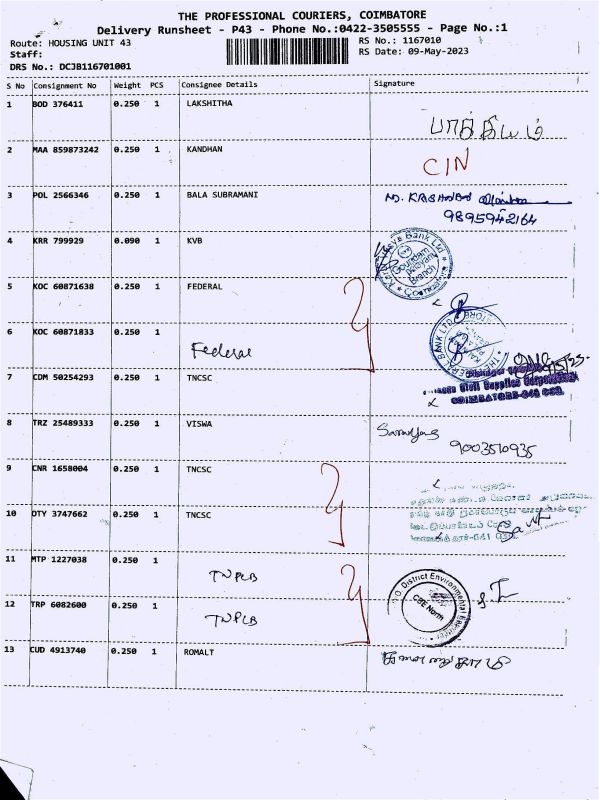 THE PROFESSIONAL COURIERS, COIMBATORE
Delivery Runsheet - P43 - Phone No.:0422-3505555 - Page No.:1
Route: HOUSING UNIT 43 RS No.: 1167010
Staff: RS Date: 09-May-2023
DRS No.: DCJB116701001
S No Consignment No Weight PCS Consignee Details Signature
1 BOD 376411 0.250 1 LAKSHITHA
2 MAA 859873242 0.250 1 KANDHAN CIN
3 POL 2566346 0.250 1 BALA SUBRAMANI
9895942164
4 KRR 799929 0.090 1 KVB
Bank Ltd
Branch
5 KOC 60871638 0.250 1 FEDERAL
6 KOC 60871833 0.250 1
Federal
7 CDM 50254293 0.250 1 TNCSC
Civil Supplies Corporation
COIMBATORE-641
8 TRZ 25489333 0.250 1 VISWA
9003510935
9 CNR 1658004 0.250 1 TNCSC
10 DTY 3747662 0.250 1 TNCSC
11 MTP 1227038 0.250 1
TNPCB
District Environmental
CBE North
12 TRP 6082600 0.250 1
TNPCB
13 CUD 4913740 0.250 1 ROMALT